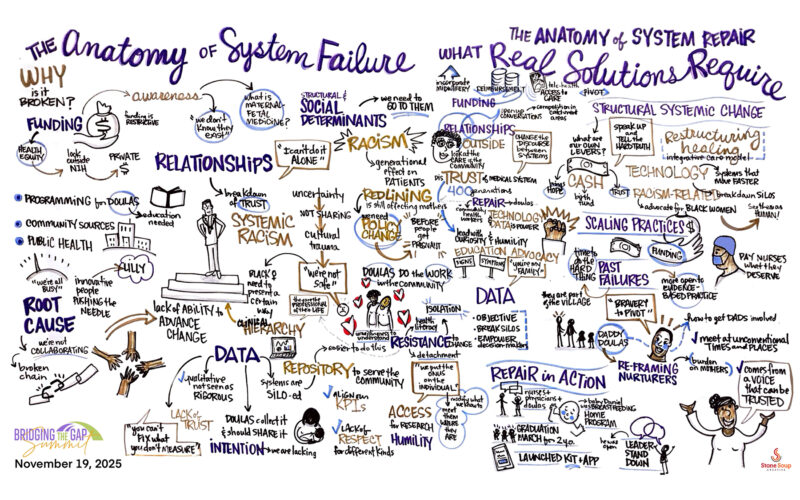 THE Anatomy OF System Failure
WHY
is it
BROKEN?
FUNDING
funding is
RESTRICTIVE
awareness
"we don't
know they
exist"
what is
MATERNAL-
FETAL
MEDICINE?
STRUCTURAL &
SOCIAL
DETERMINANTS
we need to
GO TO THEM
HEALTH
EQUITY
look
outside
NIH
PRIVATE
$
RELATIONSHIPS
"I can't do it
ALONE"
RACISM
generational
effect on
PATIENTS
breakdown
of TRUST
uncertainty
NOT SHARING
cultural
trauma
REDLINING
is still affecting mothers
we need
POLICY
CHANGE
BEFORE
people
get
PREGNANT
PROGRAMMING for DOULAS
education
needed
COMMUNITY SOURCES
PUBLIC HEALTH
SYSTEMIC
RACISM
"we're all
BUSY"
innovative
people
PUSHING THE
NEEDLE
LILLY
BLACKS
need to
present a
certain
way
"we're not
safe"
DOULAS DO the WORK
in the community
ROOT
CAUSE
we're not
COLLABORATING
broken
chain
lack of ABILITY to
ADVANCE
CHANGE
CLINICAL
HIERARCHY
ISOLATION
health
literacy
RESISTANCE to
CHANGE
detachment
DATA
qualitative
not seen as
RIGOROUS
systems are
SILO-ed
easier to do this
REPOSITORY to serve the
COMMUNITY
"we put the
ONUS
on the
INDIVIDUAL"
LACK of
TRUST
"you can't
FIX what
you don't MEASURE"
DOULAS collect it
& should SHARE it
INTENTION we are lacking
ALIGN our
KPIs
LACK of
RESPECT
for different kinds
ACCESS
FOR RESEARCH
HUMILITY
meet
them
WHERE
they
ARE
BRIDGING THE GAP
Summit
November 19, 2025
THE ANATOMY of SYSTEM REPAIR
WHAT Real Solutions Require
incorporate
MIDWIFERY
REIMBURSEMENT
tele-health
ACCESS to
CARE
PIVOT
FUNDING
open up
CONVERSATIONS
competition in
catchment
areas
RELATIONSHIPS
OUTSIDE
look at the
CARE in the COMMUNITY
CHANGE THE
DISCOURSE
between
SYSTEMS
DISTRUST of MEDICAL SYSTEM
400
generations
REPAIR
doulas
community
health
workers
lead with CURIOSITY & HUMILITY
TECHNOLOGY
DATA is POWER
EDUCATION ADVOCACY
SIGNS
SYMPTOMS
"you're my
FAMILY"
STRUCTURAL SYSTEMIC CHANGE
what are
our OWN
LEVERS?
speak up
and
the
HARD TRUTH
Restructuring
healing
integrative care model
CASH
brings
HOPE
TRUST
TECHNOLOGY
systems that
move FASTER
RACISM-RELATED
breakdown SILOS
advocate for BLACK WOMEN
see them as
HUMAN!
SCALING PRACTICES
FUNDING
time to
do the
HARD
THING
they are part of
the VILLAGE
PAST
FAILURES
more open to
EVIDENCE-
BASED PRACTICE
PAY NURSES
what they
DESERVE
DATA
OBJECTIVE
BREAK SILOS
EMPOWER
decision-makers
"BRAVERY
to PIVOT"
DADDY
DOULAS
RE-FRAMING
NURTURERS
how to get DADS involved
meet at UNCONVENTIONAL
TIMES and PLACES
burden
on MOTHERS
comes from
a VOICE
that can be
TRUSTED
REPAIR in ACTION
nurses
physicians
doulas
baby Daniel
BREASTFEEDING
HOME
PROGRAM
GRADUATION
MARCH for 2 yo
he was
open
LEADER-
STAND
DOWN
LAUNCHED KIT + APP
Stone Soup
CREATIVE